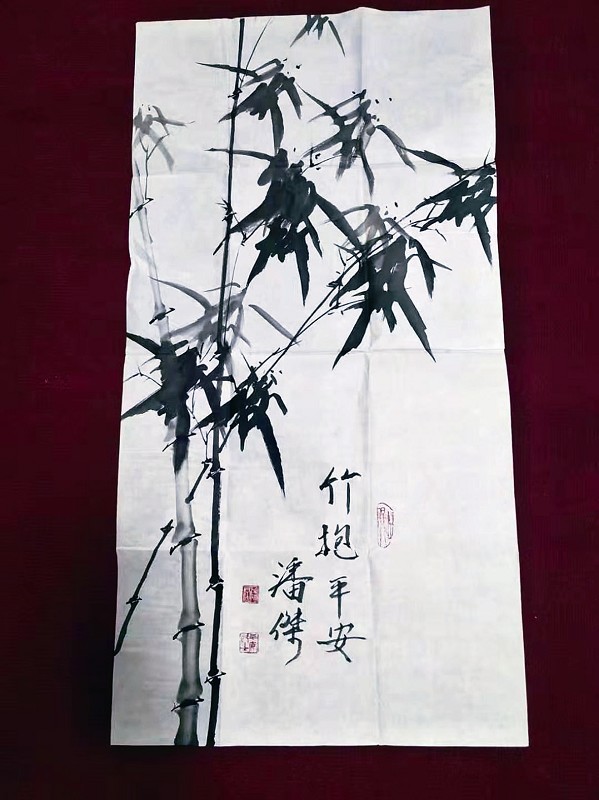 竹抱平安
潘傑